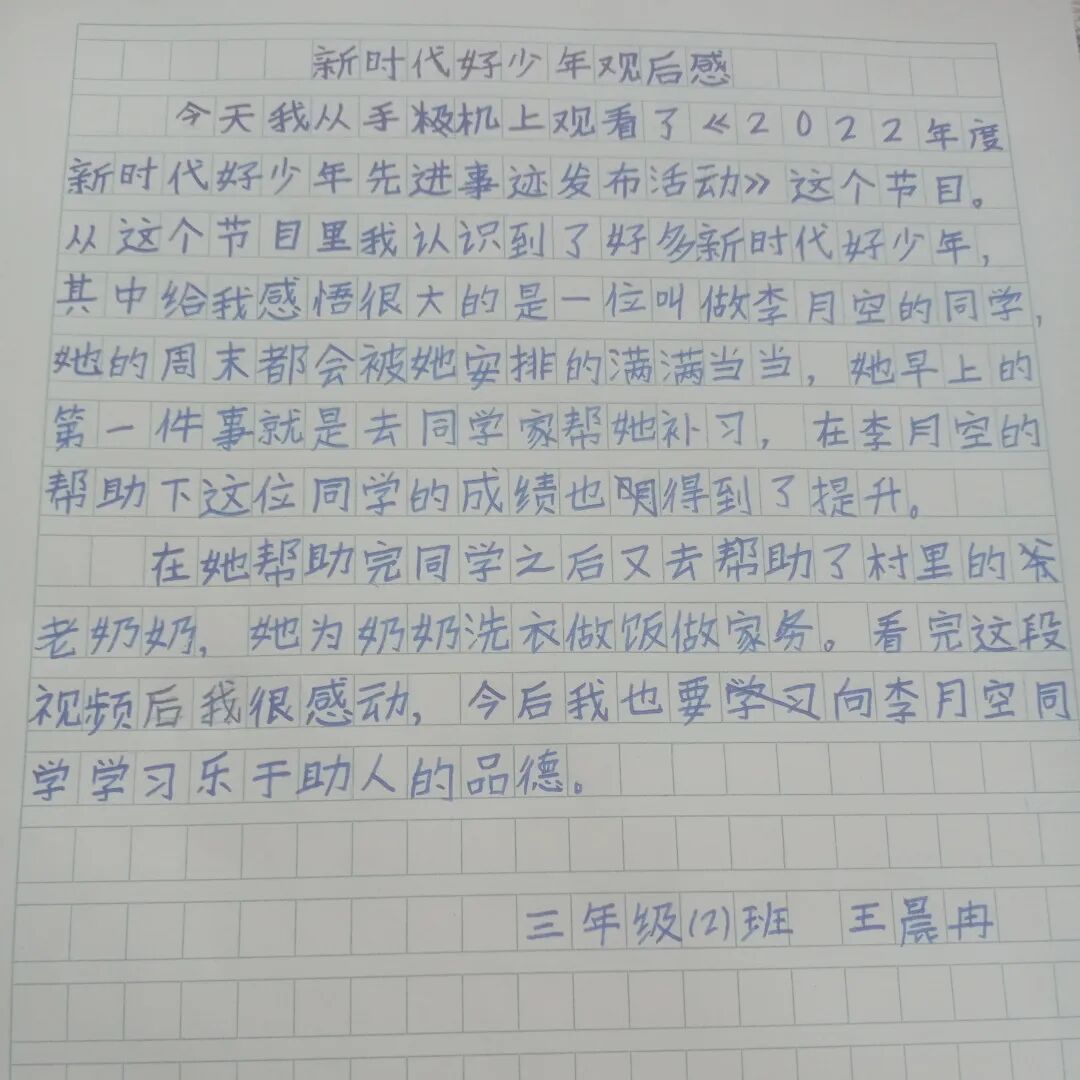 新时代好少年观后感
今天我从手机上观看了《2022年度
新时代好少年先进事迹发布活动》这个节目。
从这个节目里我认识到了好多新时代好少年，
其中给我感悟很大的是一位叫做李月空的同学，
她的周末都会被她安排的满满当当，她早上的
第一件事就是去同学家帮她补习，在李月空的
帮助下这位同学的成绩也明得到了提升。
在她帮助完同学之后又去帮助了村里的
老奶奶，她为奶奶洗衣做饭做家务。看完这段
视频后我很感动，今后我也要向李月空同
学学习乐于助人的品德。
三年级(2)班 王晨冉